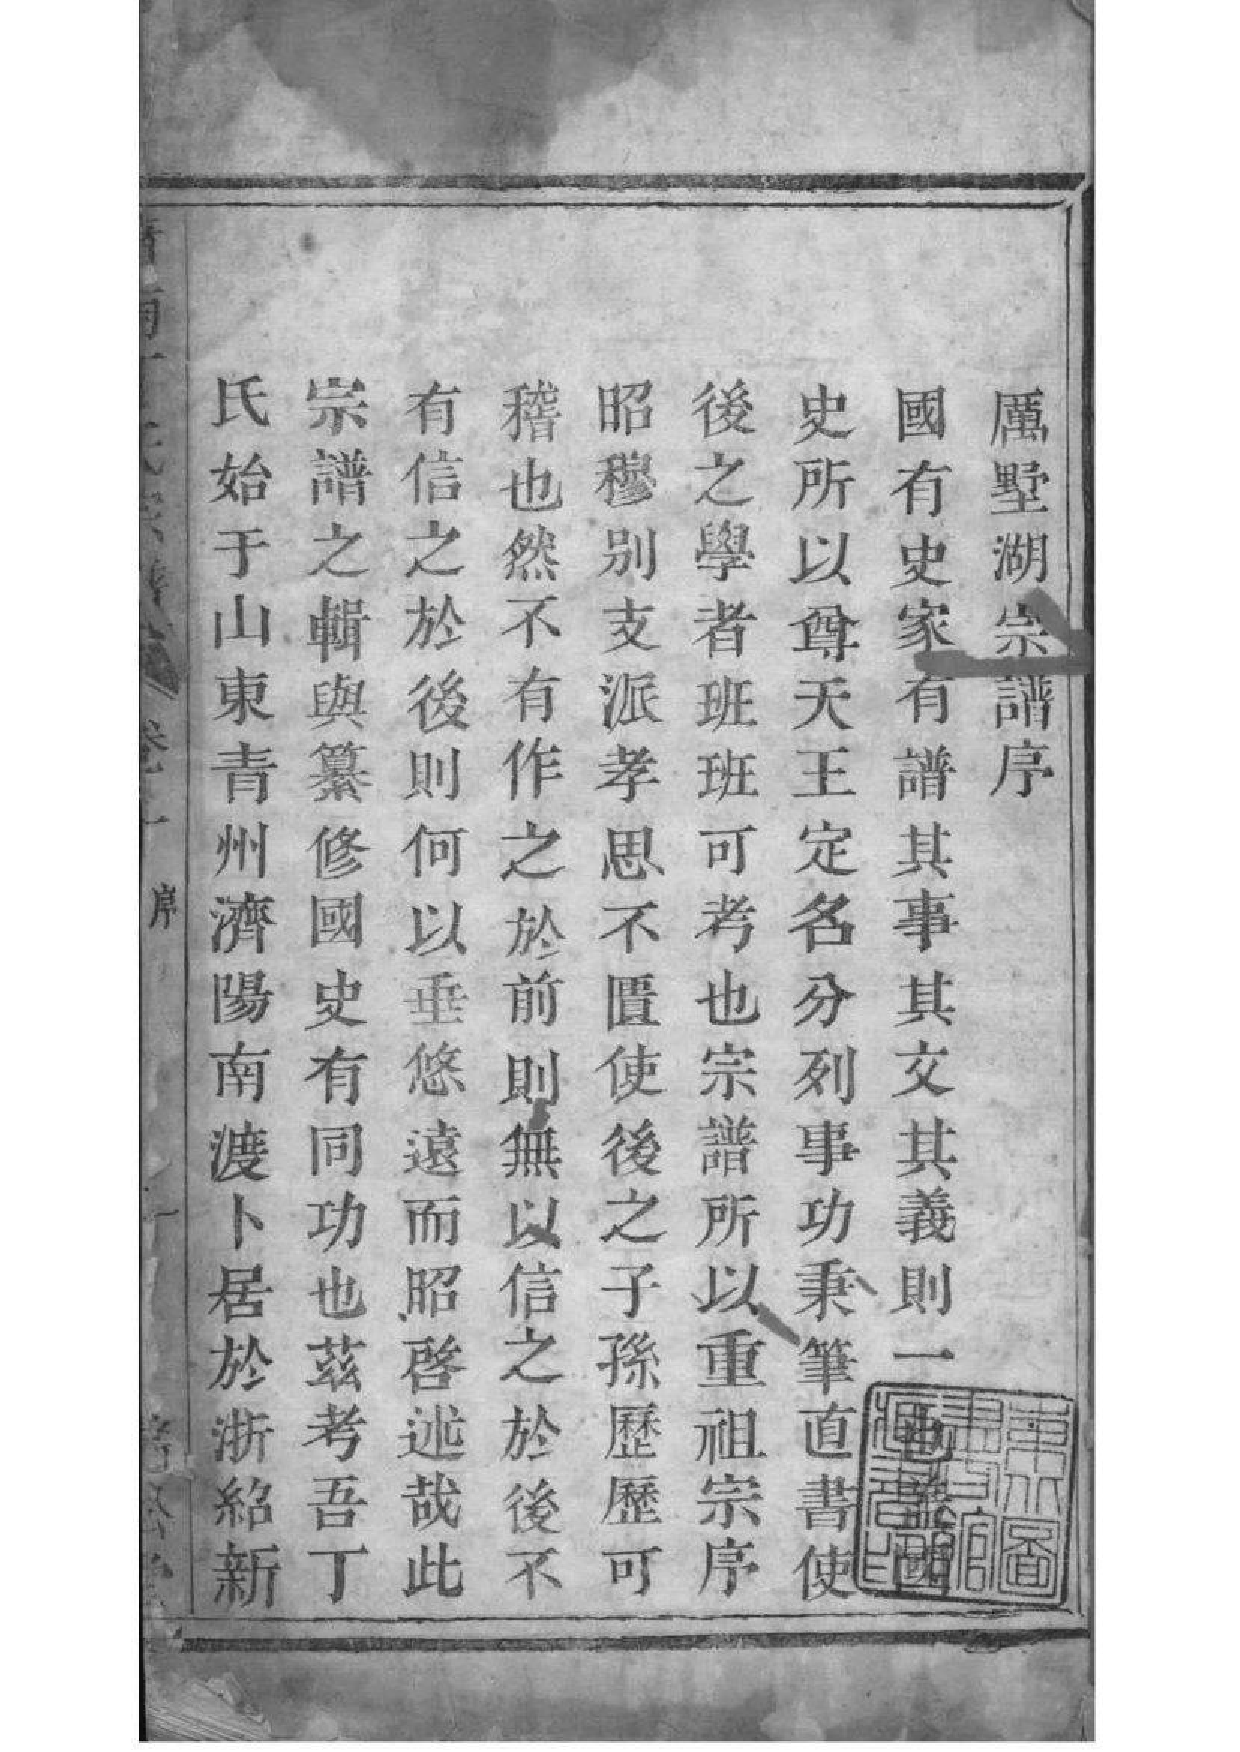 厲墅湖宗譜序
國有史家有譜其事其文其義則一也蓋國
史所以尊天王定名分列事功秉筆直書使
後之學者班班可考也宗譜所以重祖宗序
昭穆別支派孝思不匱使後之子孫歷歷可
稽也然不有作之於前則無以信之於後不
有信之於後則何以垂悠遠而昭啓述哉此
宗譜之輯與纂修國史有同功也茲考吾丁
氏始于山東青州濟陽南渡卜居於浙紹新
氏宗譜 卷一 序 一